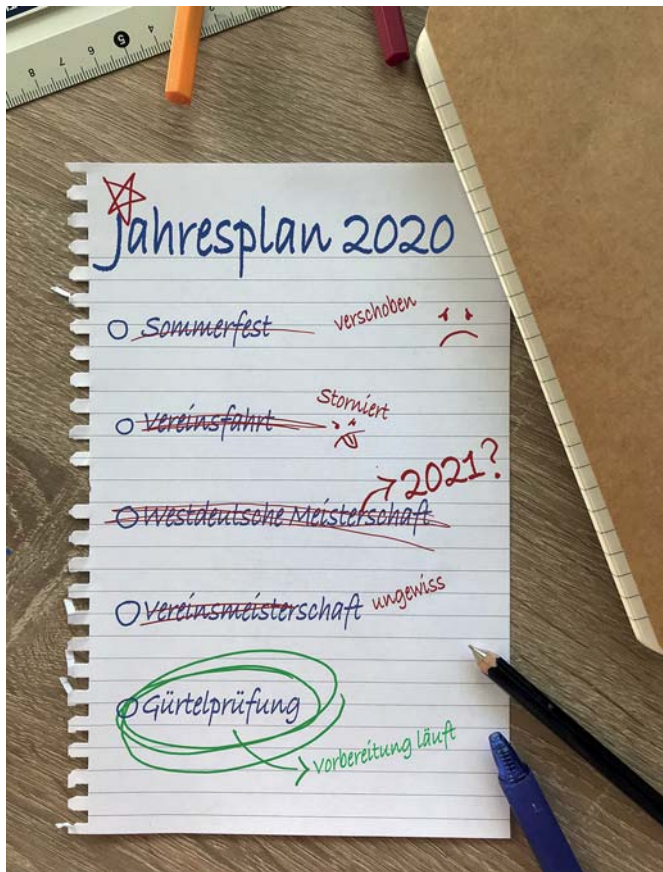 Jahresplan 2020
Sommerfest verschoben
Vereinsfahrt Storniert
2021?
Westdeutsche Meisterschaft
Vereinsmeisterschaft ungewiss
Gürtelprüfung
vorbereitung läuft
5
6
7
8
2